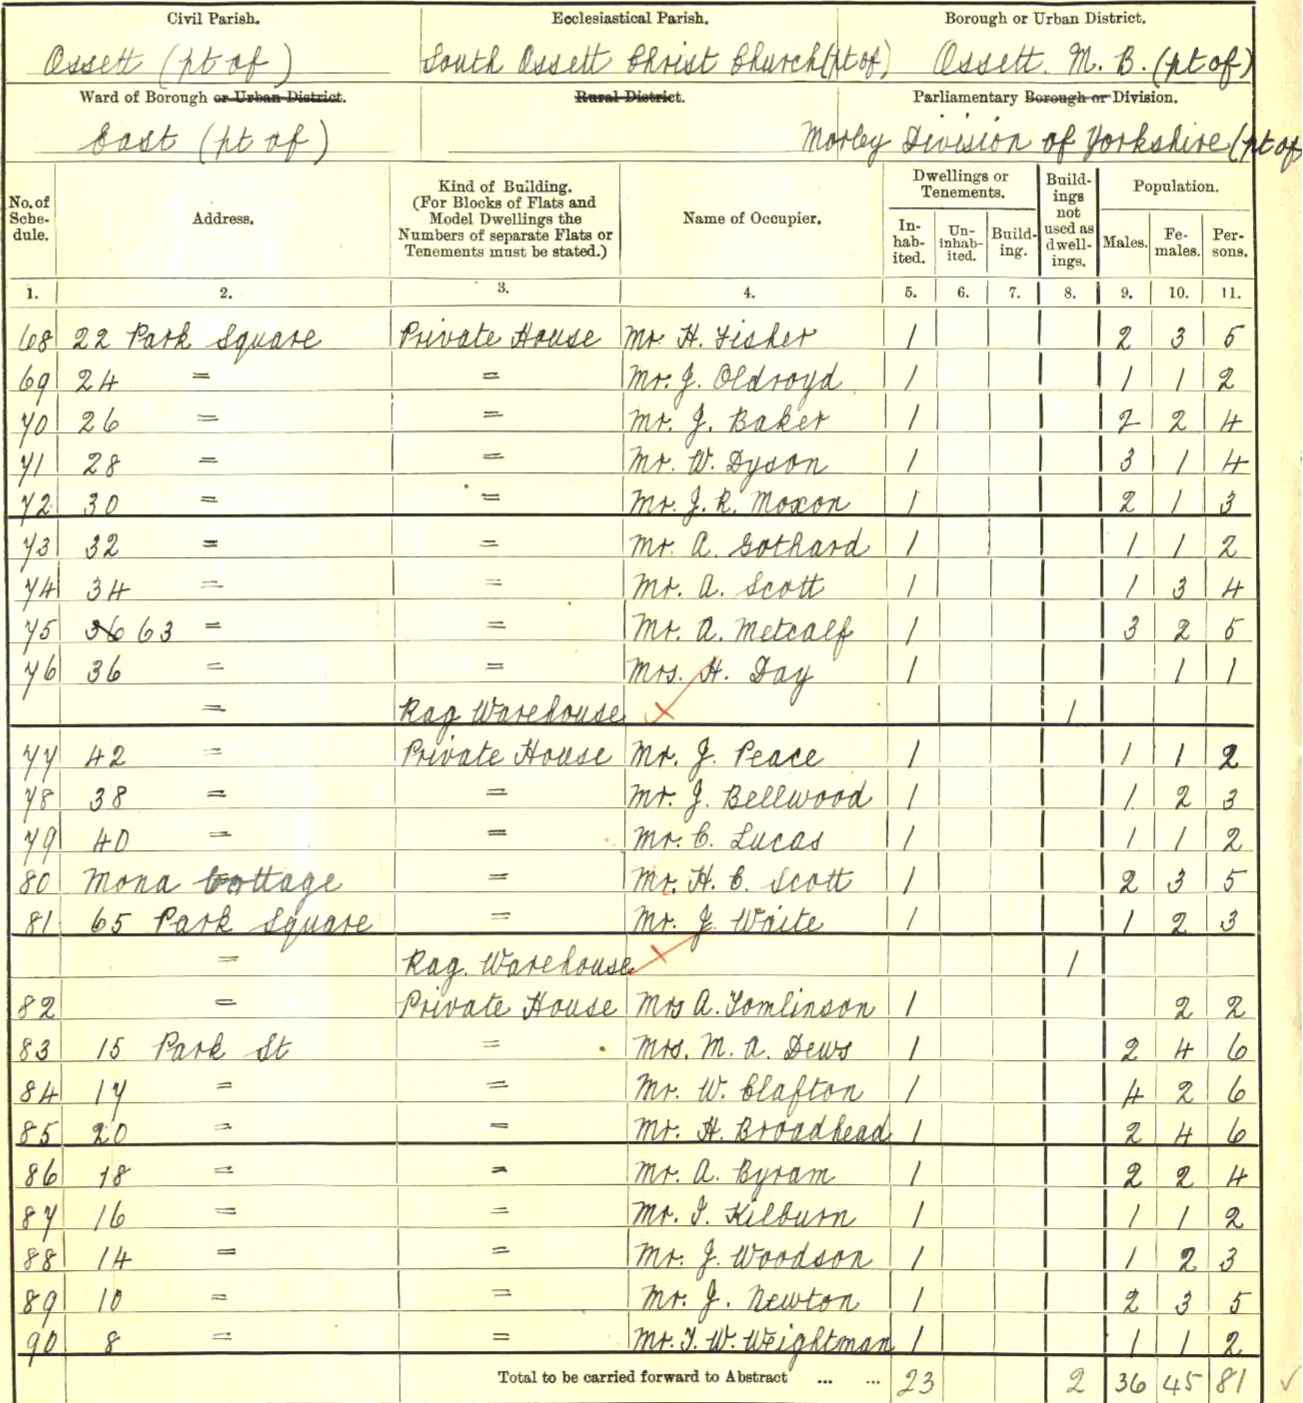 Civil Parish. Ecclesiastical Parish. Borough or Urban District.
Ossett (pt of) South Ossett Christ Church (pt of) Ossett. M. B. (pt of)
Ward of Borough or Urban District. Rural District. Parliamentary Borough or Division.
East (pt of) Morley Division of Yorkshire (pt of)
No. of Schedule. Address. Kind of Building. (For Blocks of Flats and Model Dwellings the Numbers of separate Flats or Tenements must be stated.) Name of Occupier. Dwellings or Tenements. Inhabited. Uninhabited. Building. Buildings not used as dwellings. Population. Males. Females. Persons.
1. 2. 3. 4. 5. 6. 7. 8. 9. 10. 11.
68 22 Park Square Private House Mr. H. Fisher 1 2 3 5
69 24 = = Mr. J. Oldroyd 1 1 1 2
70 26 = = Mr. J. Baker 1 2 2 4
71 28 = = Mr. W. Dyson 1 3 1 4
72 30 = = Mr. J. R. Moxon 1 2 1 3
73 32 = = Mr. A. Gothard 1 1 1 2
74 34 = = Mr. A. Scott 1 1 3 4
75 36 63 = = Mr. A. Metcalf 1 3 2 5
76 36 = = Mrs. H. Day 1 1 1
= Rag Warehouse 1
77 42 = Private House Mr. J. Peace 1 1 1 2
78 38 = = Mr. J. Bellwood 1 1 2 3
79 40 = = Mr. C. Lucas 1 1 1 2
80 Mona Cottage = Mr. H. C. Scott 1 2 3 5
81 65 Park Square = Mr. J. Waite 1 1 2 3
= Rag. Warehouse 1
82 = Private House Mrs A. Tomlinson 1 2 2
83 15 Park St = Mrs. M. A. Dews 1 2 4 6
84 17 = = Mr. W. Clafton 1 4 2 6
85 20 = = Mr. H. Broadhead 1 2 4 6
86 18 = = Mr. A. Byram 1 2 2 4
87 16 = = Mr. I. Kilburn 1 1 1 2
88 14 = = Mr. J. Woodson 1 1 2 3
89 10 = = Mr. J. Newton 1 2 3 5
90 8 = = Mr. T. W. Weightman 1 1 1 2
Total to be carried forward to Abstract ... ... 23 2 36 45 81